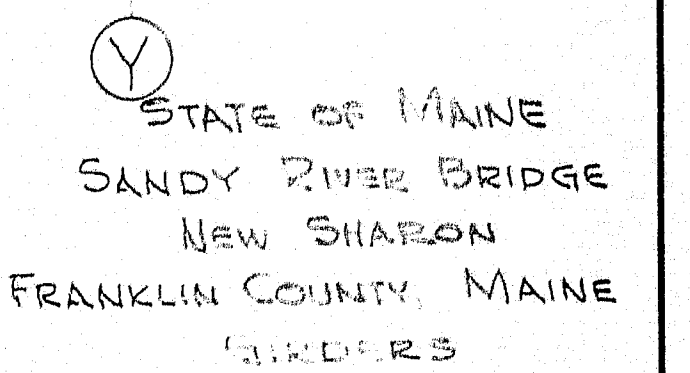 Y
STATE OF MAINE
SANDY RIVER BRIDGE
NEW SHARON
FRANKLIN COUNTY, MAINE
GIRDERS